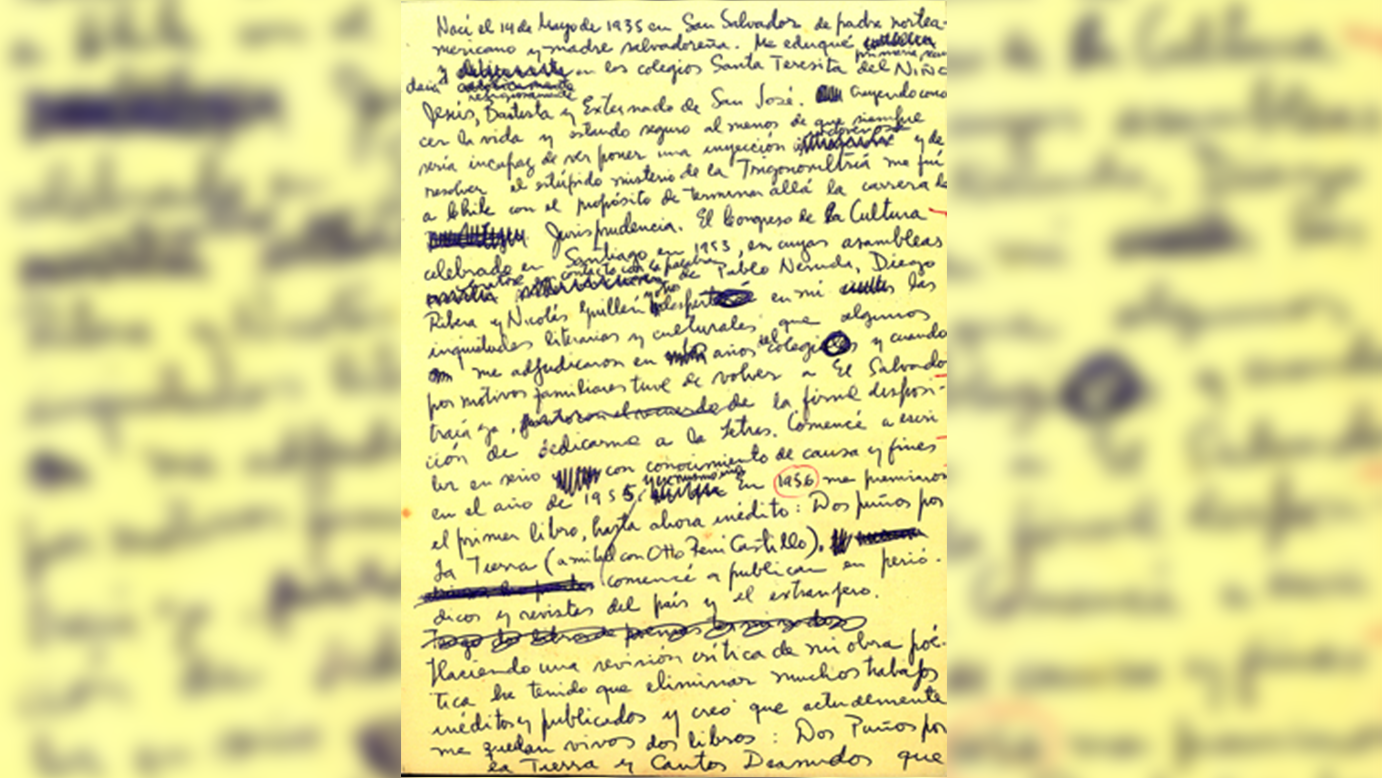 Nací el 14 de Mayo de 1935 en San Salvador, de padre nortea-
mericano y madre salvadoreña. Me eduqué
primaria, secun
y en los colegios Santa Teresita del Niño
daria
religiosamente
Jesús, Bautista y Externado de San José. Creyendo cono
cer la vida y estando seguro al menos de que siempre
sería incapaz de ver poner una inyección y de
resolver el estúpido misterio de la Trigonometría me fuí
a Chile con el propósito de terminar allá la carrera de
Jurisprudencia. El Congreso de la Cultura
celebrado en Santiago en 1953, en cuyas asambleas
contacto con la palabra
de Pablo Neruda, Diego
Ribera y Nicolás Guillén en mi las
inquietudes literarias y culturales que algunos
me adjudicaron en años y cuando
por motivos familiares tuve de volver a El Salvador
traía ya, de la firme disposi-
ción de dedicarme a la Letras. Comencé a escri
bir en serio con conocimiento de causa y fines
en el año de 1955, en 1956 me premiaron
el primer libro, hasta ahora inédito: Dos puños por
La Tierra (a mitad con Otto René Castillo).
comencé a publicar en perió-
dicos y revistas del país y el extranjero.
Haciendo una revisión crítica de mi obra poé-
tica he tenido que eliminar muchos trabajos
inéditos y publicados y creo que actualmente
me quedan vivos dos libros: Dos Puños por
la Tierra y Cantos Desnudos que